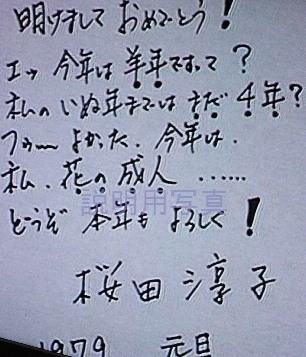 明けまして おめでとう!
エッ 今年は 羊年ですって?
私の いぬ年までは まだ 4年?
フゥ〜 よかった. 今年は.
私、花の成人 ……
説明用写真
どうぞ 本年も よろしく!
桜田淳子
1979 元旦